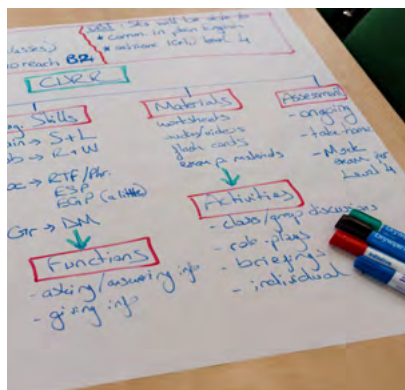 : Sts will be able to
* comm. in plain English
* achieve ICAO level 4
classes)
to reach B2
CURR
Skills
Main → S+L
→ R+W
→ RTF/Phr.
ESP
EGP (a little)
Gr → DM
Functions
- asking/answering info
- giving info
Materials
worksheets
audio/videos
flash cards
exam p. materials
Activities
- class/group discussions
- role-plays
- briefings
- individual
Assessment
- ongoing
- take home
- Mock
exam for
Level 4